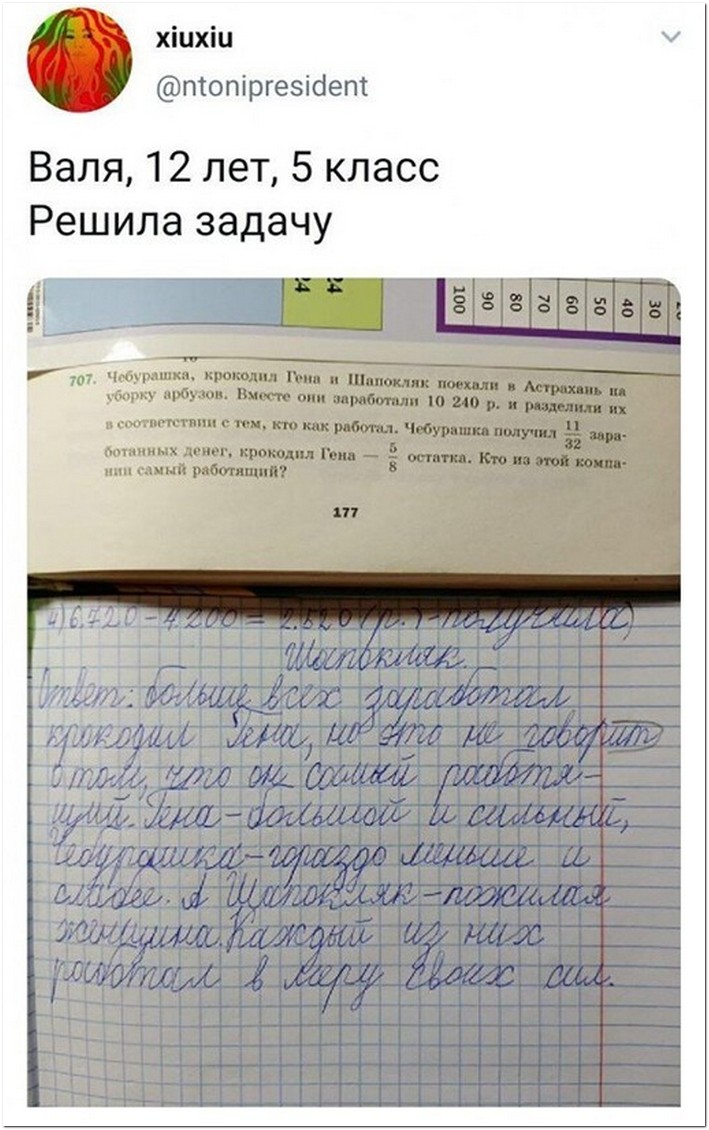 xiuxiu
@ntonipresident
Валя, 12 лет, 5 класс
Решила задачу
24
24
100 90 80 70 60 50 40 30
707. Чебурашка, крокодил Гена и Шапокляк поехали в Астрахань на
уборку арбузов. Вместе они заработали 10 240 р. и разделили их
в соответствии с тем, кто как работал. Чебурашка получил 11/32 зара-
ботанных денег, крокодил Гена — 5/8 остатка. Кто из этой компа-
нии самый работящий?
177
4) 6.720 - 4.200 = 2.520 (р.) - получила
Шапокляк.
Ответ: больше всех заработал
крокодил Гена, но это не говорит
о том, что он самый работя-
щий. Гена - большой и сильный,
Чебурашка - гораздо меньше и
слабее. А Шапокляк - пожилая
женщина. Каждый из них
работал в меру своих сил.